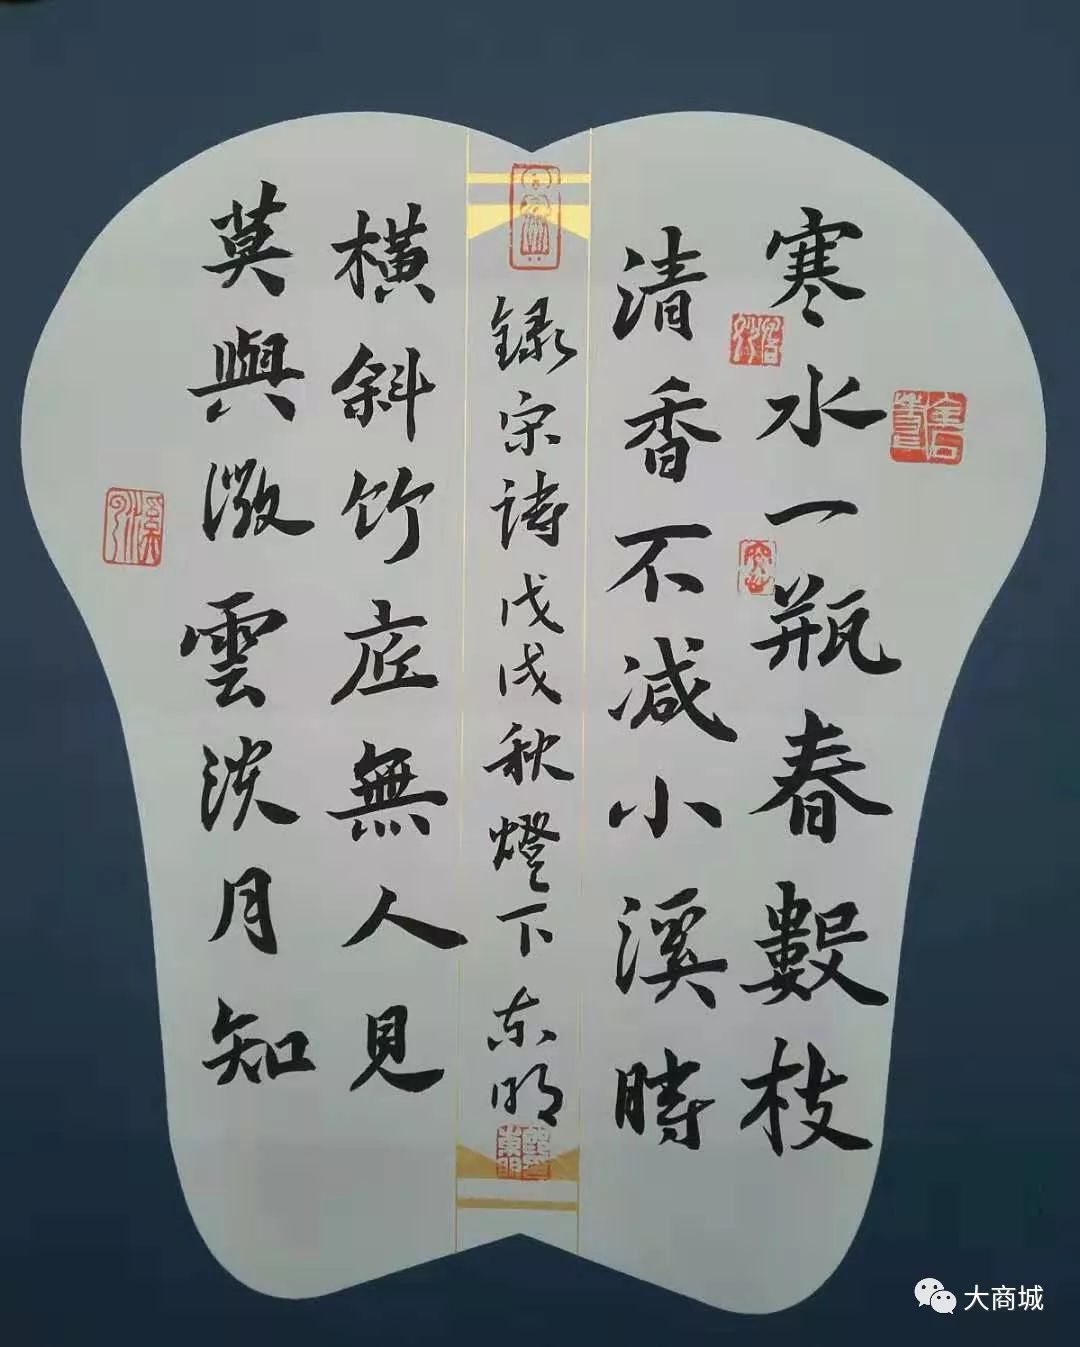 寒水一瓶春數枝
清香不減小溪時
横斜竹底無人見
莫與微雲淡月知
録宋詩戊戌秋燈下东明
大商城